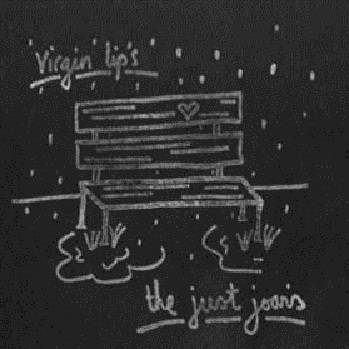 'virgin' lip's
the just joans